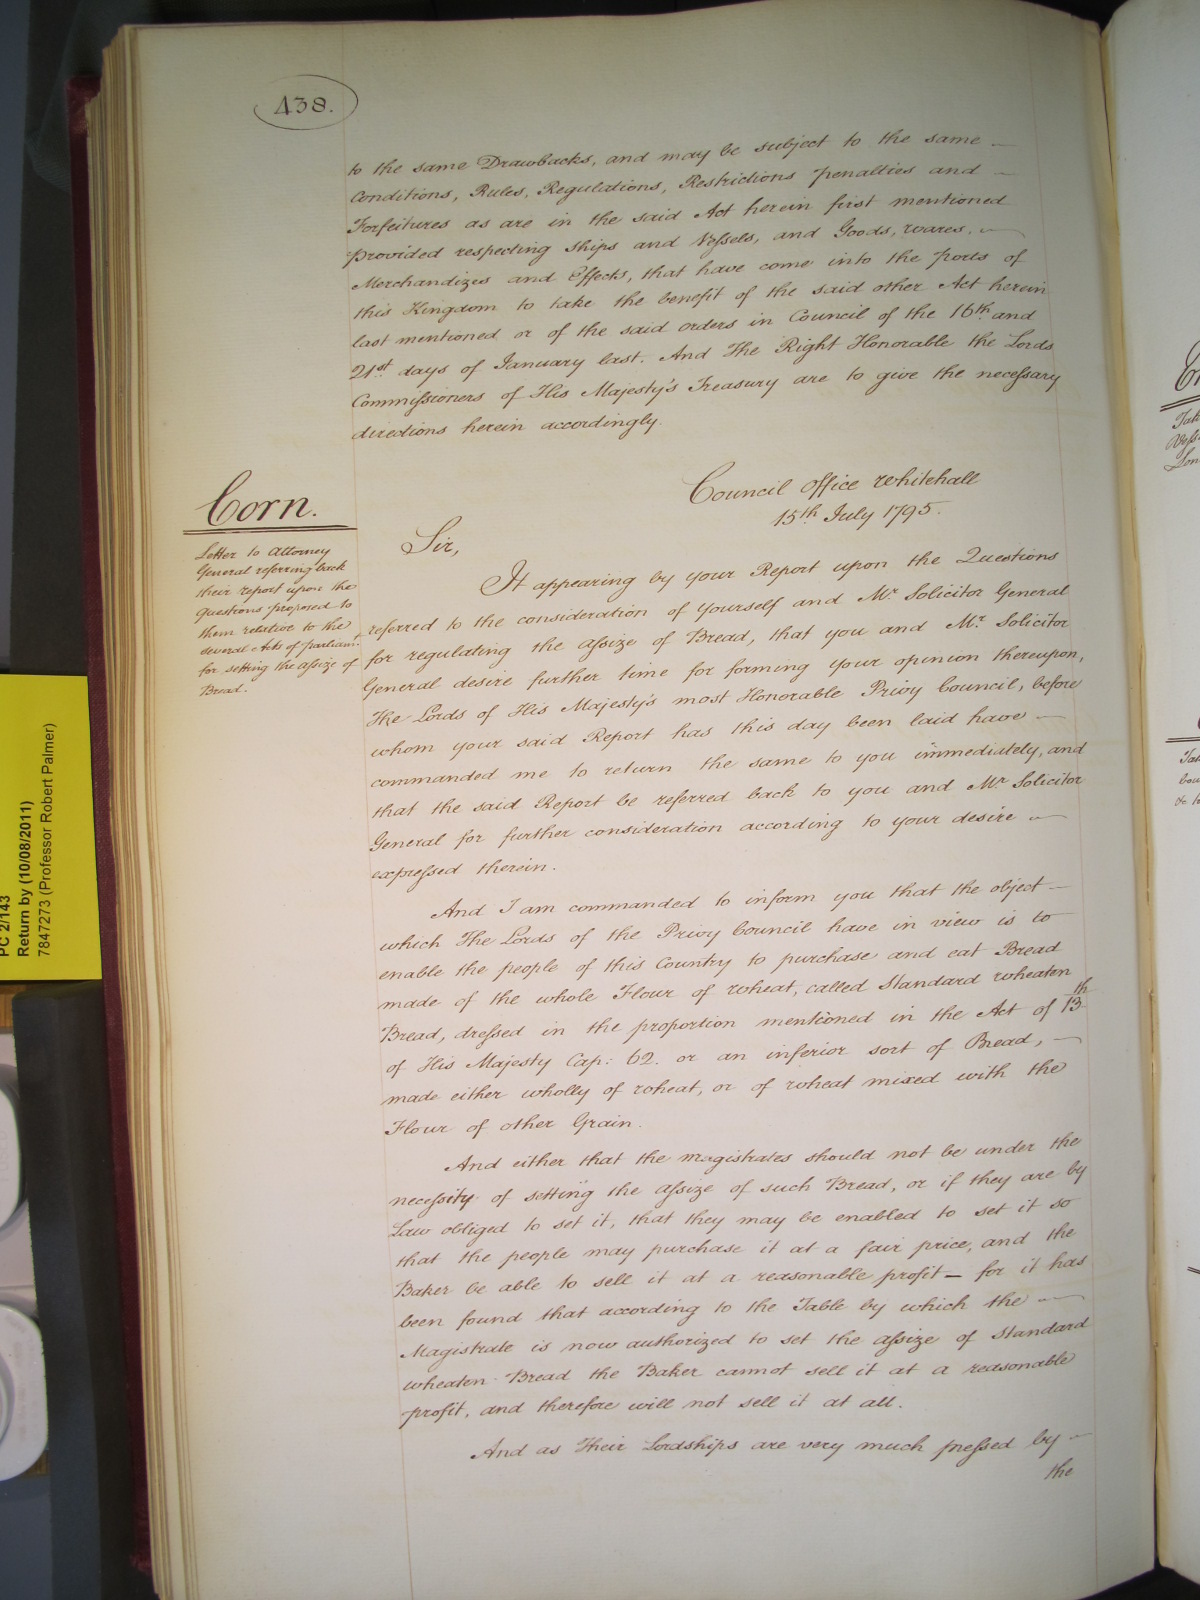 438.
to the same Drawbacks, and may be subject to the same
Conditions, Rules, Regulations, Restrictions penalties and
Forfeitures as are in the said Act herein first mentioned
provided respecting ships and Vessels, and Goods, wares,
Merchandizes and Effects, that have come into the ports of
this Kingdom to take the benefit of the said other Act herein
last mentioned or of the said orders in Council of the 16th and
21st days of January last. And The Right Honorable the Lords
Commissioners of His Majesty's Treasury are to give the necessary
directions herein accordingly.
Corn.
Letter to Attorney
General referring back
their report upon the
Questions proposed to
them relative to the
several Acts of parliamt.
for setting the assize of
Bread.
Council Office Whitehall
15th July 1795.
Sir,
It appearing by your Report upon the Questions
referred to the consideration of yourself and Mr. Solicitor General
for regulating the assize of Bread, that you and Mr. Solicitor
General desire further time for forming your opinion thereupon,
The Lords of His Majesty's most Honorable Privy Council, before
whom your said Report has this day been laid have
commanded me to return the same to you immediately, and
that the said Report be referred back to you and Mr. Solicitor
General for further consideration according to your desire
expressed therein.
And I am commanded to inform you that the object
which The Lords of the Privy Council have in view is to
enable the people of this Country to purchase and eat Bread
made of the whole Flour of wheat, called Standard wheaten
Bread, dressed in the proportion mentioned in the Act of 13th
of His Majesty Cap: 62. or an inferior sort of Bread,
made either wholly of wheat, or of wheat mixed with the
Flour of other Grain.
And either that the magistrates should not be under the
necessity of setting the assize of such Bread, or if they are by
Law obliged to set it, that they may be enabled to set it so
that the people may purchase it at a fair price, and the
Baker be able to sell it at a reasonable profit — for it has
been found that according to the Table by which the
Magistrate is now authorized to set the assize of Standard
wheaten Bread the Baker cannot sell it at a reasonable
profit, and therefore will not sell it at all.
And as Their Lordships are very much pressed by
the
PC 2/143
Return by (10/08/2011)
7847273 (Professor Robert Palmer)